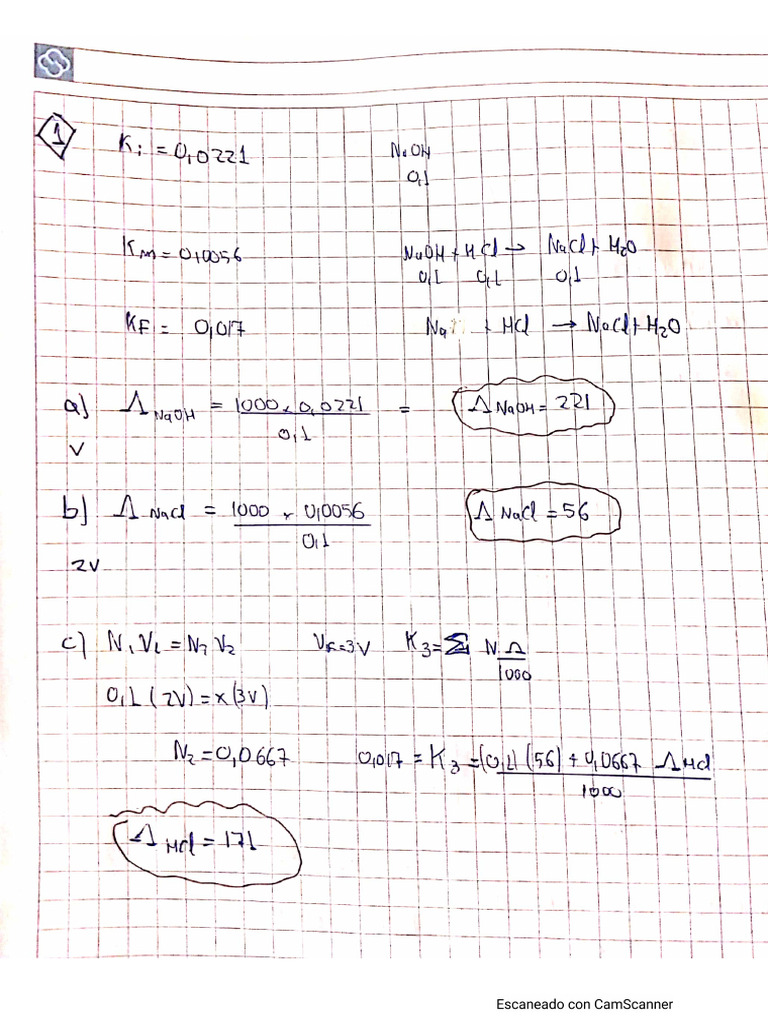 1
Ki = 0,0221 NaOH
0,1
KM = 0,0056 NaOH + HCl → NaCl + H2O
0,1 0,1 0,1
KF = 0,017 Na + HCl → NaCl + H2O
a) Λ NaOH = 1000 x 0,0221 / 0,1 = Λ NaOH = 221
V
b) Λ NaCl = 1000 x 0,0056 / 0,1 Λ NaCl = 56
2V
c) N1 V1 = N2 V2 VF = 3V K3 = Σ N Λ / 1000
0,1 (2V) = x (3V)
N2 = 0,0667 0,017 = K3 = (0,1) (56) + 0,0667 Λ HCl / 1000
Λ HCl = 171
Escaneado con CamScanner